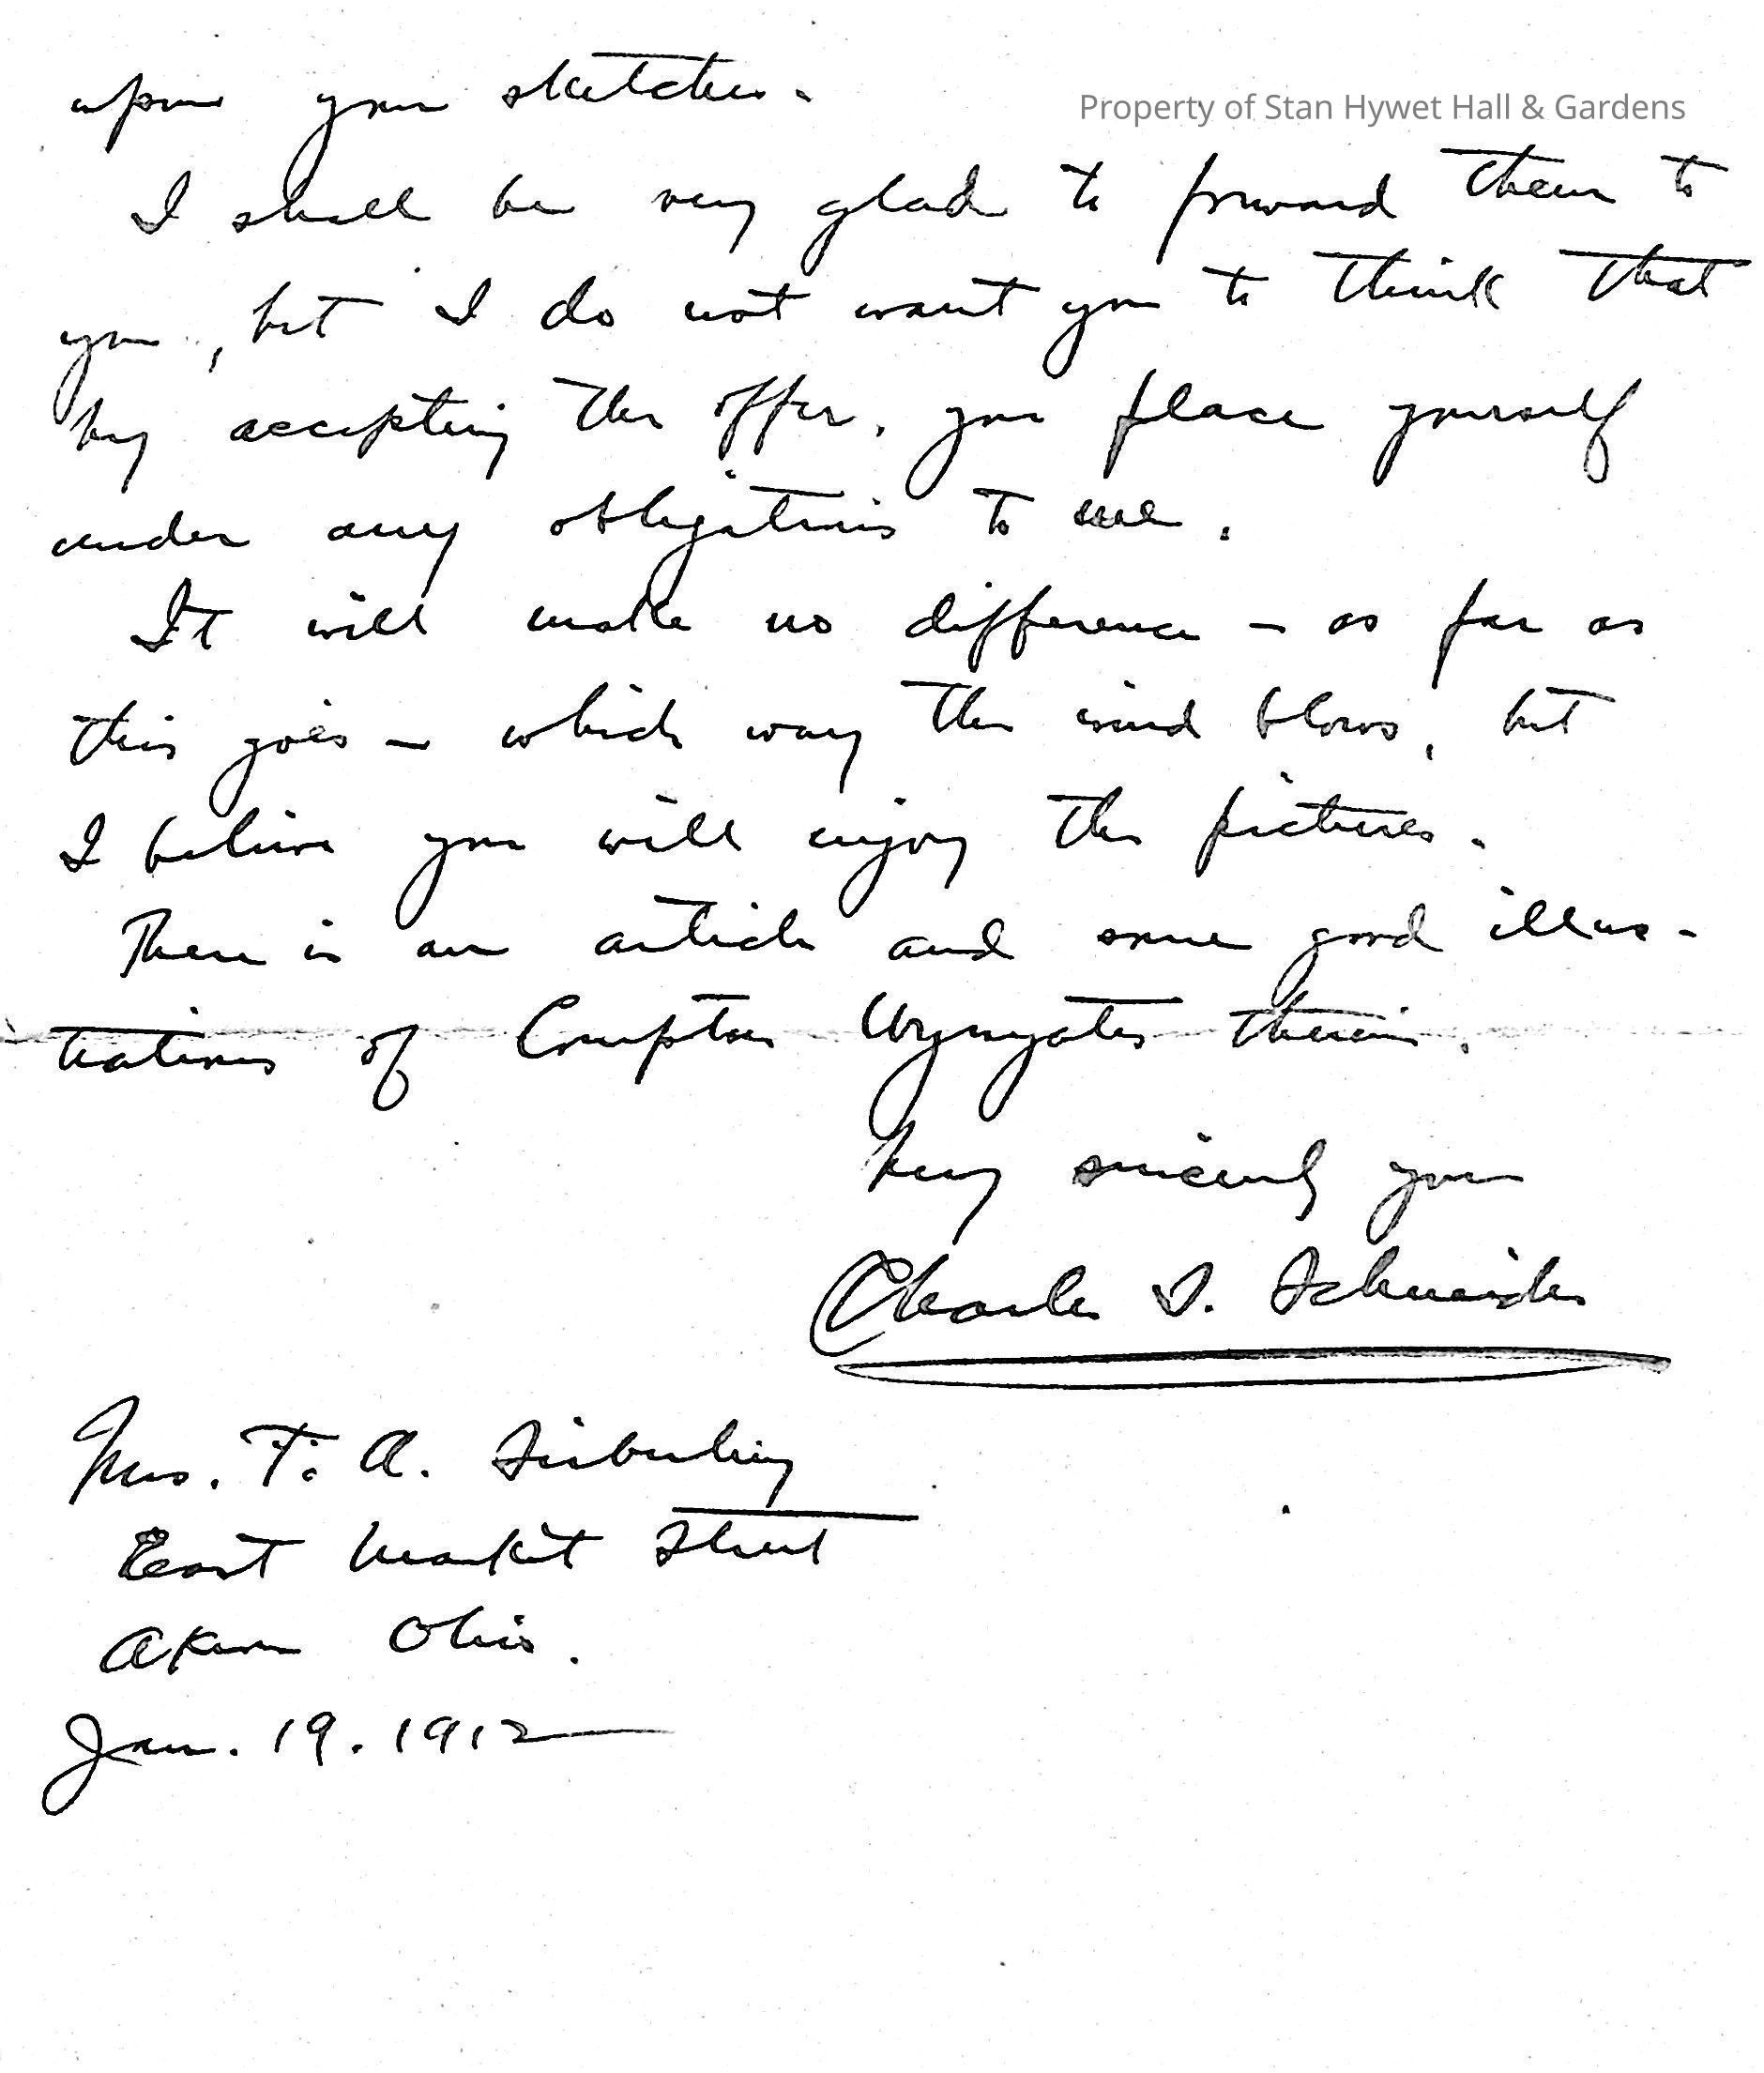 upon your sketches.
Property of Stan Hywet Hall & Gardens
I shall be very glad to forward them to
you, but I do not want you to think that
by accepting the offer, you place yourself
under any obligations to me.
It will make no difference – as far as
this goes – which way the wind blows, but
I believe you will enjoy the pictures.
There is an article and some good illus-
trations of Compton Wynyates therein.
Very sincerely yours
Charles S. Schneider
Mrs. F. A. Seiberling
East Market Street
Akron Ohio.
Jan. 19. 1912